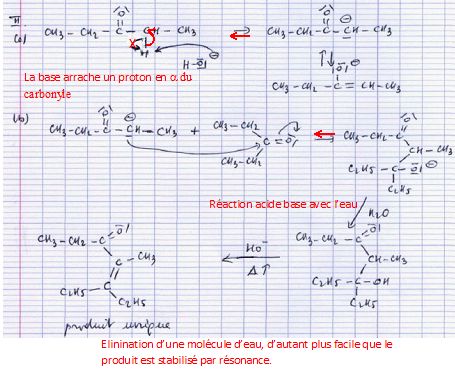 II
(a) CH3-CH2-C(=O)-CH-CH3 ⇌ CH3-CH2-C(=O)-CH⊖-CH3
H
H-O⊖
CH3-CH2-C(-O⊖)=CH-CH3
La base arrache un proton en α du
carbonyle
(b) CH3-CH2-C(=O)-CH⊖-CH3 + CH3-CH2 C=O CH3-CH2 ⇌ CH3-CH2-C=O
CH-CH3
C2H5-C-O⊖
C2H5
Réaction acide base avec l'eau
H2O
CH3-CH2-C=O
C-CH3
C2H5-C
C2H5
HO⁻
Δ↑
CH3-CH2-C=O
CH-CH3
C2H5-C-OH
C2H5
produit unique
Elinination d'une molécule d'eau, d'autant plus facile que le
produit est stabilisé par résonance.